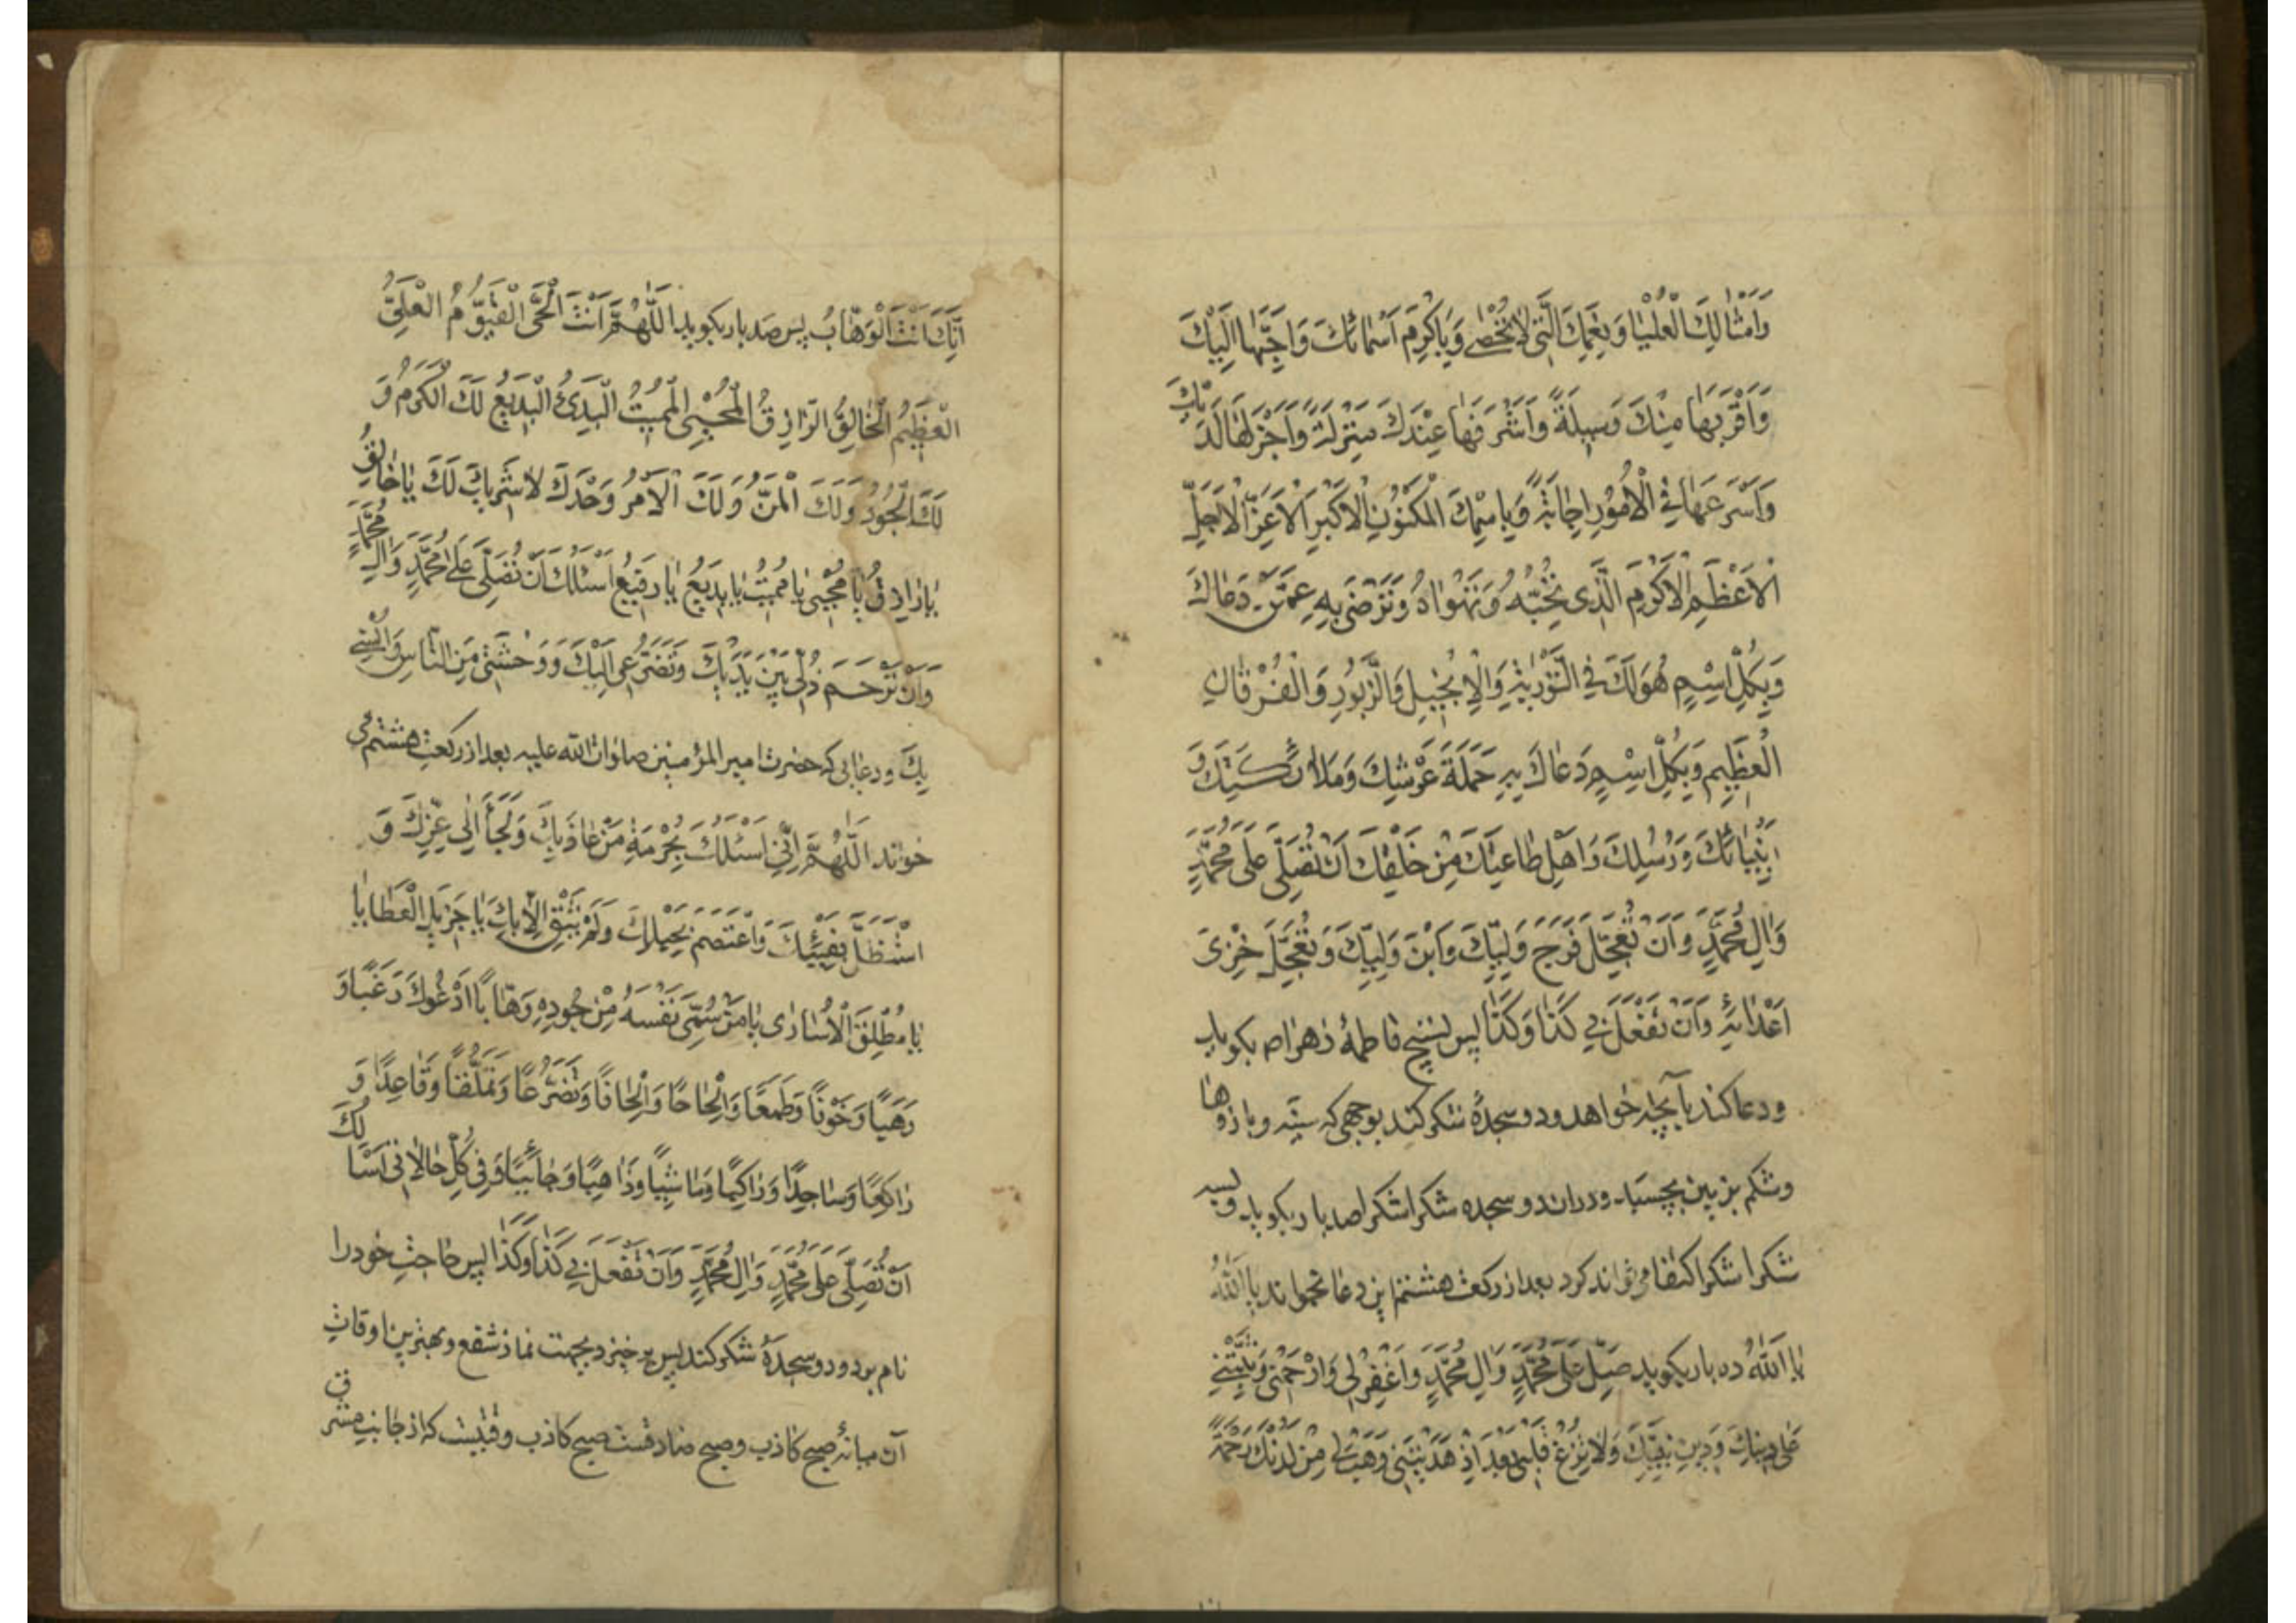 وَاَمْثالِكَ الْعُلْيا وَنِعَمِكَ الَّتى لا تُحْصى وَبِاَكْرَمِ اَسْمائِكَ وَاَحَبِّها اِلَيْكَ
وَاَقْرَبِها مِنْكَ وَسيلَةً وَاَشْرَفِها عِنْدَكَ مَنْزِلَةً وَاَجْزَلِها لَدَيْكَ
وَاَسْرَعِها فِى الْاُمُورِ اِجابَةً وَبِاسْمِكَ الْمَكْنُونِ الْاَكْبَرِ الْاَعَزِّ الْاَجَلِّ
الْاَعْظَمِ الْاَكْرَمِ الَّذى تُحِبُّهُ وَتَهْواهُ وَتَرْضى بِهِ عَمَّنْ دَعاكَ
وَبِكُلِّ اسْمٍ هُوَ لَكَ فِى التَّوْريةِ وَالْاِنْجيلِ وَالزَّبُورِ وَالْفُرْقانِ
الْعَظيمِ وَبِكُلِّ اسْمٍ دَعاكَ بِهِ حَمَلَةُ عَرْشِكَ وَمَلائِكَتِكَ وَ
اَنْبِيائِكَ وَرُسُلِكَ وَاَهْلِ طاعَتِكَ مِنْ خَلْقِكَ اَنْ تُصَلِّىَ عَلى مُحَمَّدٍ
وَالِ مُحَمَّدٍ وَاَنْ تُعَجِّلَ فَرَجَ وَلِيِّكَ وَابْنَ وَلِيِّكَ وَتُعَجِّلَ خِزْىَ
اَعْدائِهِ وَاَنْ تَفْعَلَ بى كَذا وَكَذا پس تسبيح فاطمهٔ زهرا ص بگويد
ودعا كند بآنچه خواهد ودو سجدهٔ شكر كند بوجهى كه سينه وبازوها
وشكم بزمين بچسباند ودران دو سجده شكرا شكرا صد بار بگويد وبسه
شكرا شكرا اكتفا مى تواند كرد بعد از ركعت هشتم اين دعا بخواند يا اَللّهُ
يا اَللّهُ ده بار بگويد صَلِّ عَلى مُحَمَّدٍ وَالِ مُحَمَّدٍ وَاغْفِرْ لى وَارْحَمْنى وَثَبِّتْنى
عَلى دينِكَ وَدينِ نَبِيِّكَ وَلا تُزِغْ قَلْبى بَعْدَ اِذْ هَدَيْتَنى وَهَبْ لى مِنْ لَدُنْكَ رَحْمَةً
اِنَّكَ اَنْتَ الْوَهّابُ پس صد بار بگويد اَللّهُمَّ اَنْتَ الْحَىُّ الْقَيُّومُ الْعَلِىُّ
الْعَظيمُ الْخالِقُ الرّازِقُ الْمُحْيِى الْمُميتُ الْبَدِئُ الْبَديعُ لَكَ الْكَرَمُ وَ
لَكَ الْجُودُ وَلَكَ الْمَنُّ وَلَكَ الْاَمْرُ وَحْدَكَ لا شَريكَ لَكَ يا خالِقُ
يا رازِقُ يا مُحْيى يا مُميتُ يا بَديعُ يا رَفيعُ اَسْئَلُكَ اَنْ تُصَلِّىَ عَلى مُحَمَّدٍ وَالِ مُحَمَّدٍ
وَاَنْ تَرْحَمَ ذُلّى بَيْنَ يَدَيْكَ وَتَضَرُّعى اِلَيْكَ وَوَحْشَتى مِنَ النّاسِ وَاُنْسى
بِكَ ودعايى كه حضرت امير المؤمنين صلوات الله عليه بعد از ركعت هشتم مى
خواند اَللّهُمَّ اِنّى اَسْئَلُكَ بِحُرْمَةِ مَنْ عاذَ بِكَ وَلَجَاَ اِلى عِزِّكَ وَ
اسْتَظَلَّ بِفَيْئِكَ وَاعْتَصَمَ بِحَبْلِكَ وَلَمْ يَثِقْ اِلّا بِكَ يا جَزيلَ الْعَطايا
يا مُطْلِقَ الْاُسارى يا مَنْ سَمّى نَفْسَهُ مِنْ جُودِهِ وَهّابًا اَدْعُوكَ رَغَبًا وَ
رَهَبًا وَخَوْفًا وَطَمَعًا وَاِلْحاحًا وَاِلْحافًا وَتَضَرُّعًا وَتَمَلُّقًا وَقاعِدًا وَ
راكِعًا وَساجِدًا وَراكِبًا وَماشِيًا وَذاهِبًا وَجائِيًا وَفى كُلِّ حالاتى اَسْاَلُكَ
اَنْ تُصَلِّىَ عَلى مُحَمَّدٍ وَالِ مُحَمَّدٍ وَاَنْ تَفْعَلَ بى كَذا وَكَذا پس حاجت خودرا
نام برد ودو سجدهٔ شكر كند پس برخيزد بجهت نماز شفع وبهترين اوقات
آن ميانهٔ صبح كاذب وصبح صادقست صبح كاذب وقتيست كه از جانب مشرق